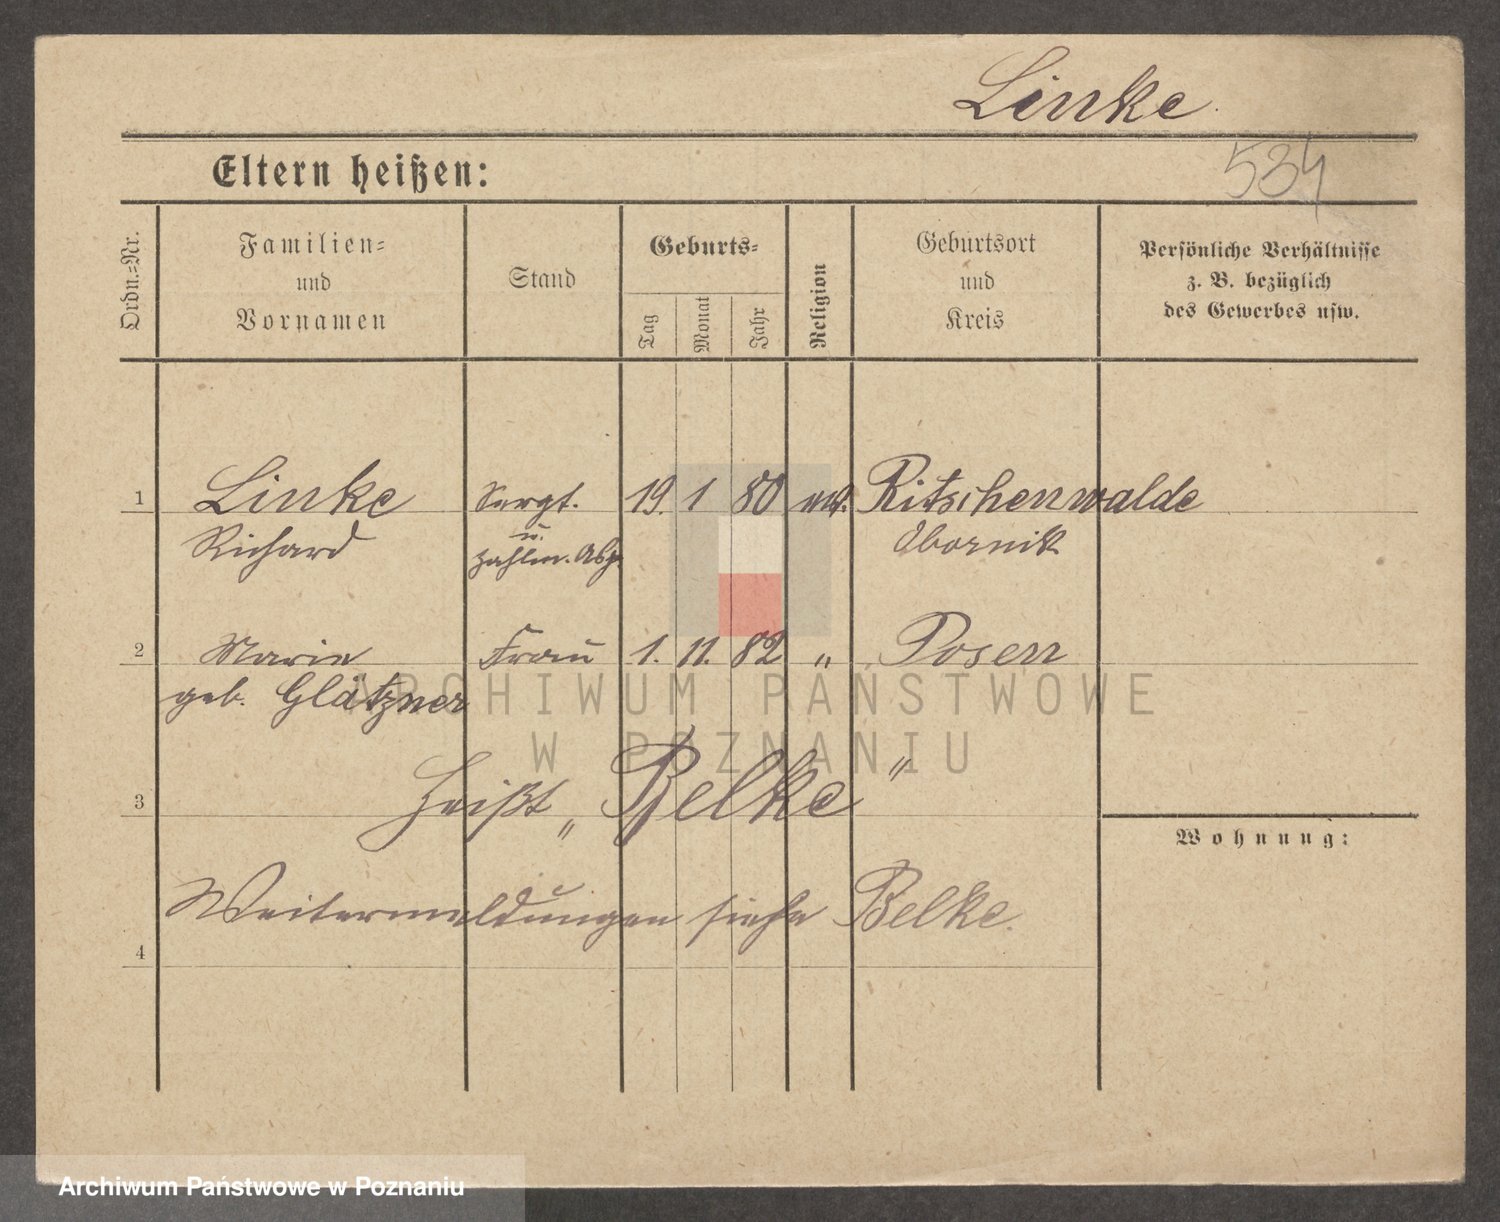 Linke
Eltern heißen:
534
Ordn.=Nr.
Familien=
und
Vornamen
Stand
Geburts=
Tag
Monat
Jahr
Religion
Geburtsort
und
Kreis
Persönliche Verhältnisse
z. B. bezüglich
des Gewerbes usw.
1 Linke Sergt. 19. 1 80 ev. Ritschenwalde
Richard u. Zahlm. Asp. Obornik
2 Marie Frau 1. 11. 82 " Posen
geb. Glätzner
ARCHIWUM PAŃSTWOWE
W POZNANIU
3 heißt „Belke"
Wohnung:
Weitermeldungen siehe Belke.
4
Archiwum Państwowe w Poznaniu